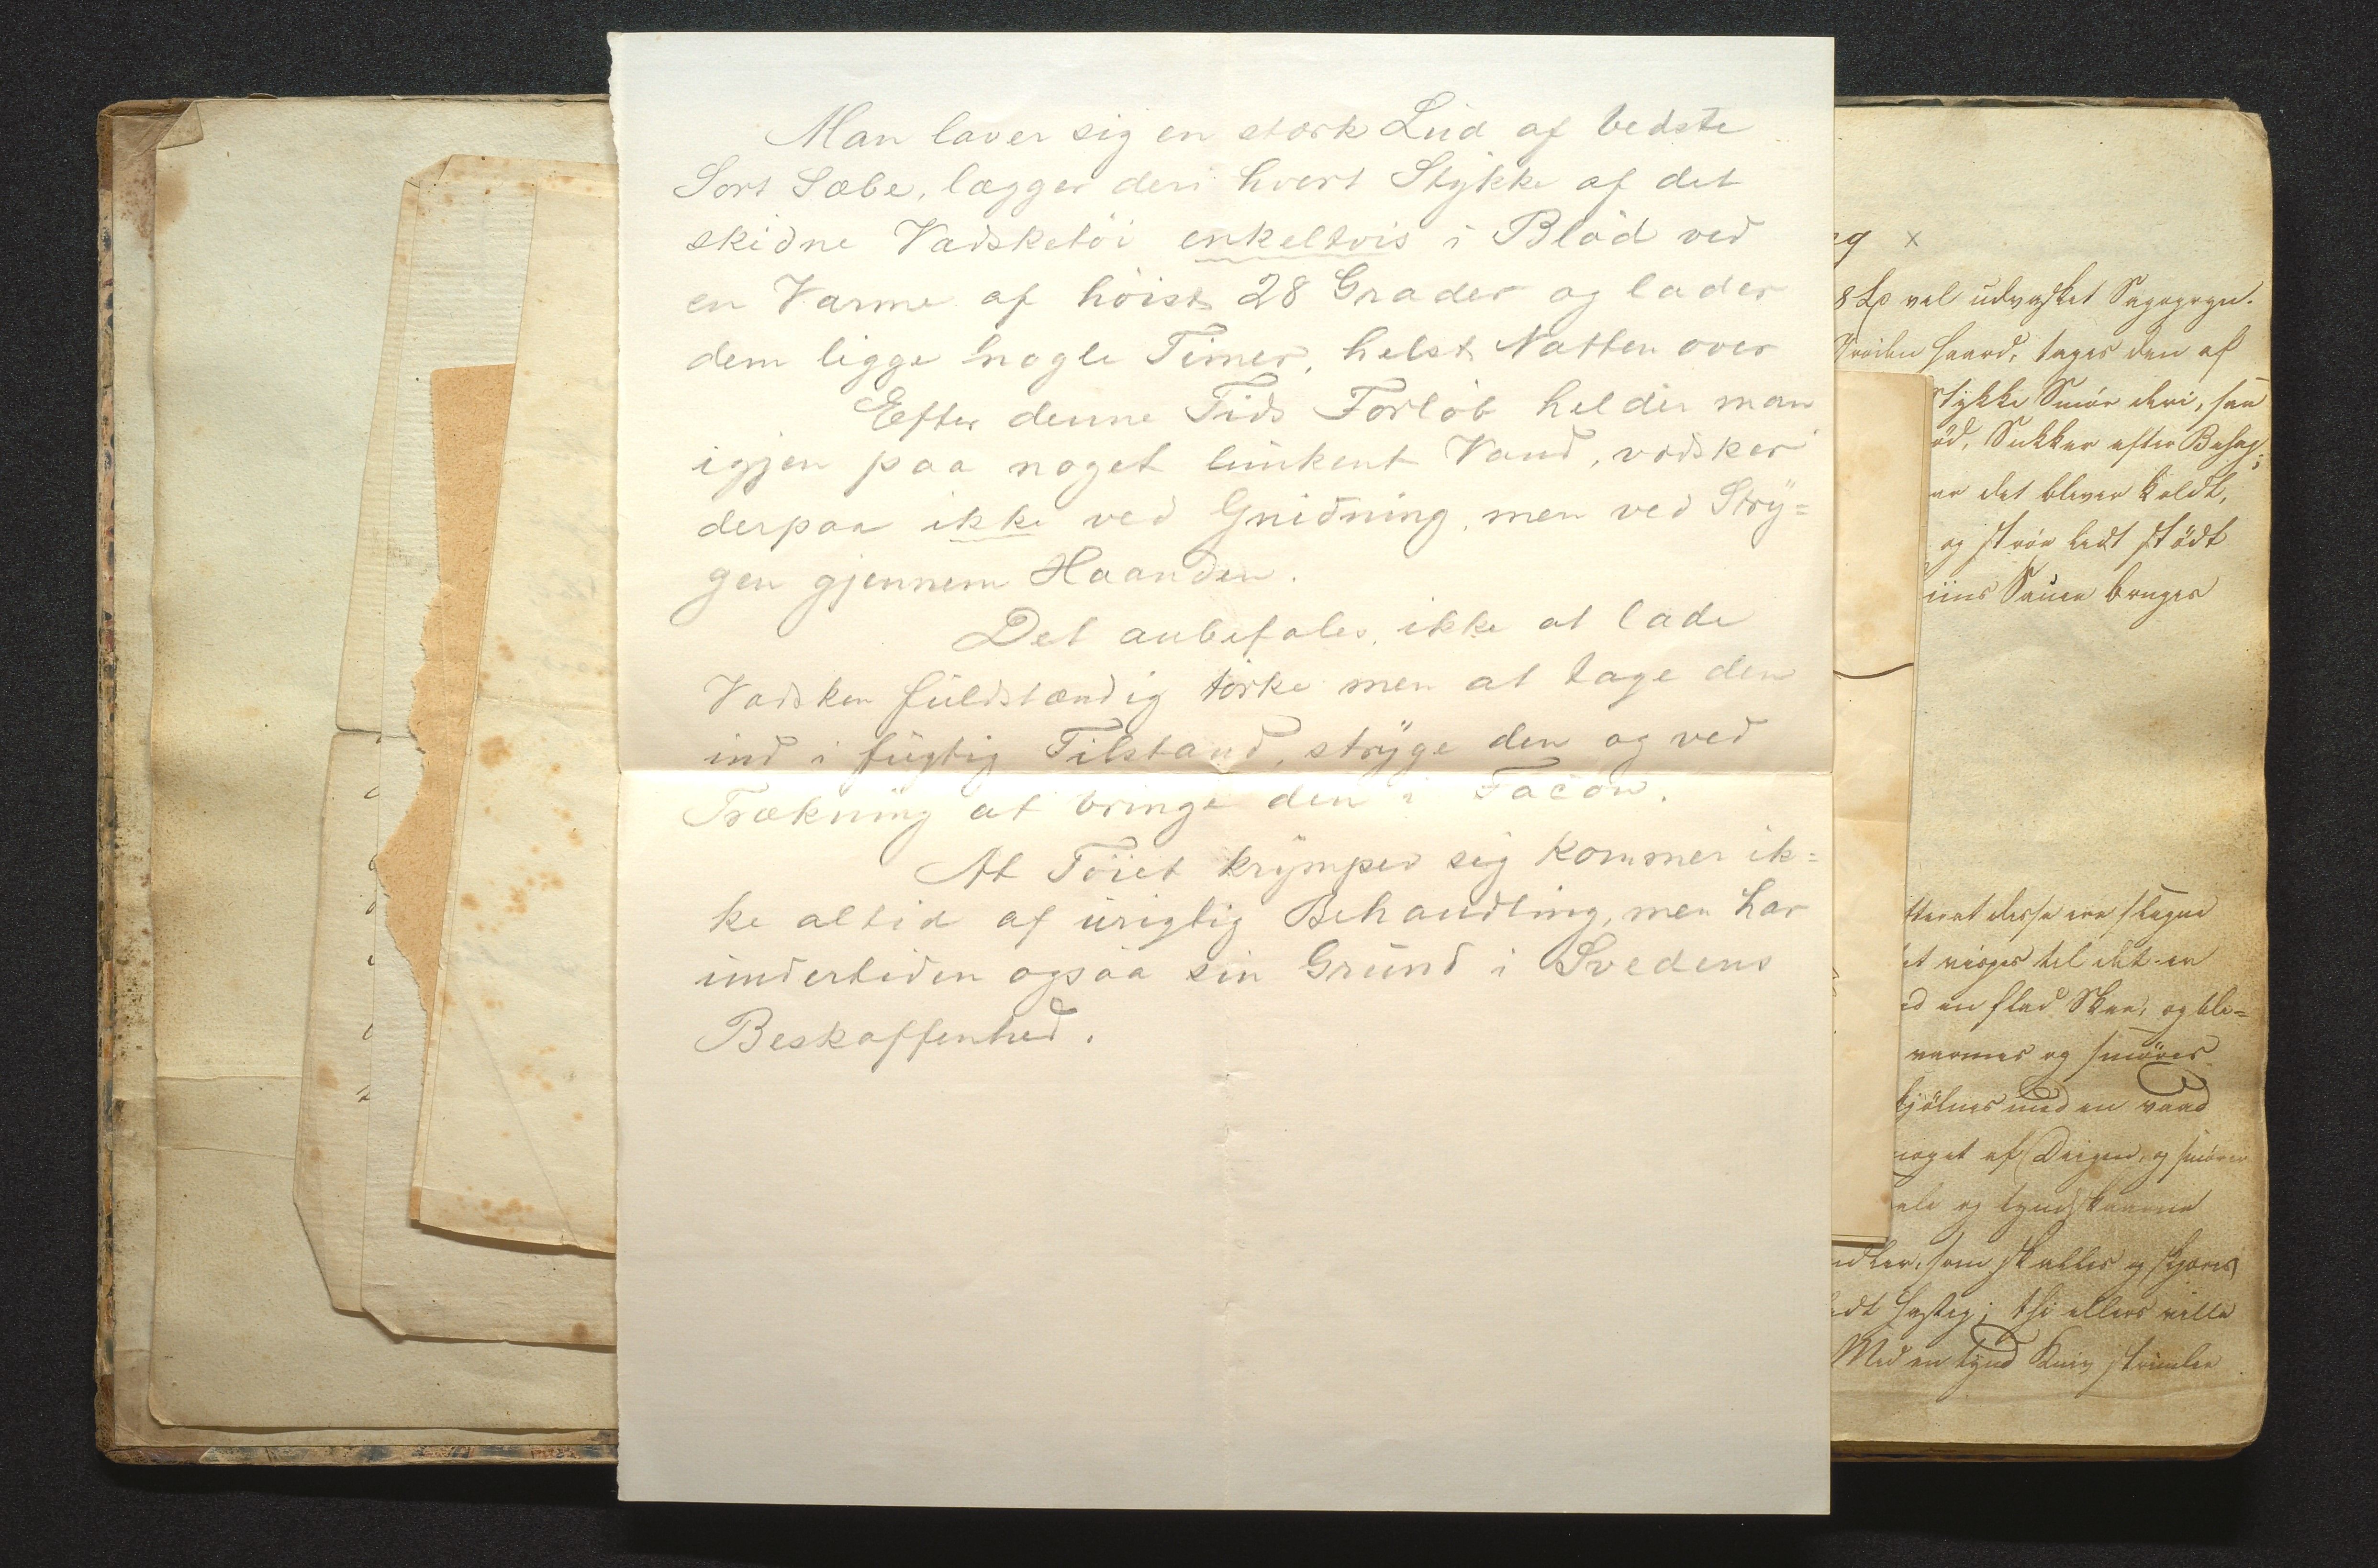 Man laver sig en stærk Lud af bedste
Sort Sæbe, lægger deri hvert Stykke af det
skidne Vadsketöi enkeltvis i Blöd ved
en Varme af höist 28 Grader og lader
dem ligge nogle Timer, helst Natten over
Efter denne Tids Forløb helder man
igjen paa noget lunkent Vand, vadsker
derpaa ikke ved Gnidning, men ved Stry=
gen gjennem Haanden.
Det anbefales, ikke at lade
Vadsken fuldstændig törke men at tage den
ind i fugtig Tilstand, stryge den og ved
Trækning at bringe den i Facon.
At Töiet krymper sig kommer ik=
ke altid af urigtig Behandling, men har
undertiden ogsaa sin Grund i Svedens
Beskaffenhed.
x
vel udvasket Sagogryn.
haard, tages den af
Stykke Smör deri, saa
Sukker efter Behag;
det bliver koldt,
og strör lidt stödt
Sauce bruges
disse ere slagne
til det er
en flad Skee, og bli=
varmes og smöres
med en vaad
noget af Deigen, og smörer
og tynd
som skalles og skjæres
hastig; thi ellers ville
Med en tynd Kniv